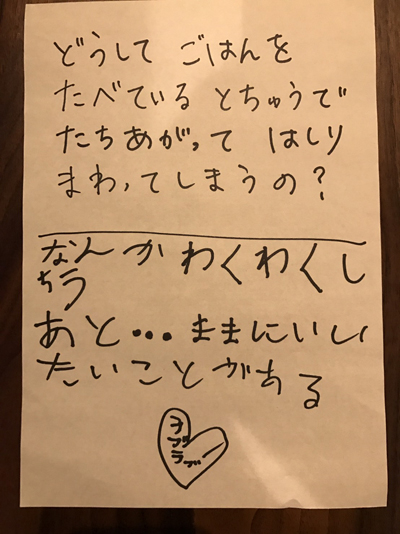 どうして ごはんを
たべている とちゅうで
たちあがって はしり
まわってしまうの？
なんかわくわくし
ちう
あと…ままにいし
たいことがある